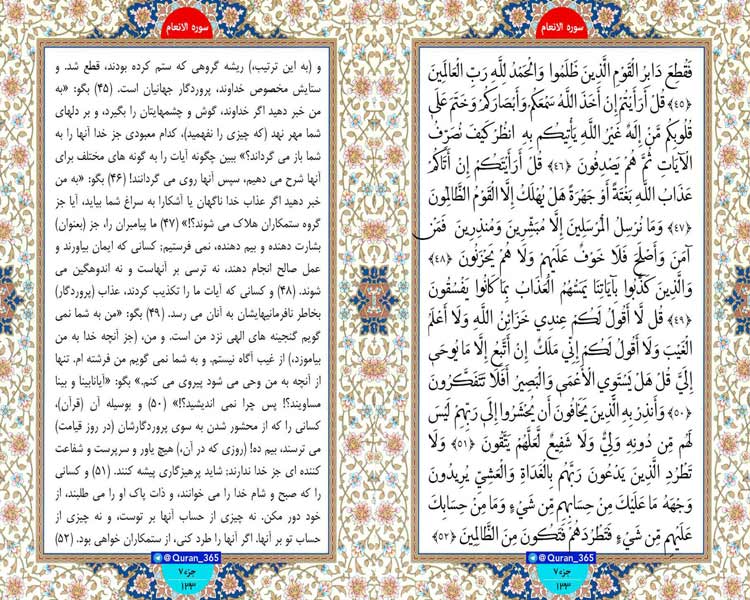 سوره الانعام
فَقُطِعَ دَابِرُ الْقَوْمِ الَّذِينَ ظَلَمُوا وَالْحَمْدُ لِلَّهِ رَبِّ الْعَالَمِينَ
﴿۴۵﴾ قُلْ أَرَأَيْتُمْ إِنْ أَخَذَ اللَّهُ سَمْعَكُمْ وَأَبْصَارَكُمْ وَخَتَمَ عَلَى
قُلُوبِكُم مَّنْ إِلَهٌ غَيْرُ اللَّهِ يَأْتِيكُم بِهِ انظُرْ كَيْفَ نُصَرِّفُ
الْآيَاتِ ثُمَّ هُمْ يَصْدِفُونَ ﴿۴۶﴾ قُلْ أَرَأَيْتَكُمْ إِنْ أَتَاكُمْ
عَذَابُ اللَّهِ بَغْتَةً أَوْ جَهْرَةً هَلْ يُهْلَكُ إِلَّا الْقَوْمُ الظَّالِمُونَ
﴿۴۷﴾ وَمَا نُرْسِلُ الْمُرْسَلِينَ إِلَّا مُبَشِّرِينَ وَمُنذِرِينَ فَمَنْ
آمَنَ وَأَصْلَحَ فَلَا خَوْفٌ عَلَيْهِمْ وَلَا هُمْ يَحْزَنُونَ ﴿۴۸﴾
وَالَّذِينَ كَذَّبُوا بِآيَاتِنَا يَمَسُّهُمُ الْعَذَابُ بِمَا كَانُوا يَفْسُقُونَ
﴿۴۹﴾ قُل لَّا أَقُولُ لَكُمْ عِندِي خَزَائِنُ اللَّهِ وَلَا أَعْلَمُ
الْغَيْبَ وَلَا أَقُولُ لَكُمْ إِنِّي مَلَكٌ إِنْ أَتَّبِعُ إِلَّا مَا يُوحَى
إِلَيَّ قُلْ هَلْ يَسْتَوِي الْأَعْمَى وَالْبَصِيرُ أَفَلَا تَتَفَكَّرُونَ
﴿۵۰﴾ وَأَنذِرْ بِهِ الَّذِينَ يَخَافُونَ أَن يُحْشَرُوا إِلَى رَبِّهِمْ لَيْسَ
لَهُم مِّن دُونِهِ وَلِيٌّ وَلَا شَفِيعٌ لَّعَلَّهُمْ يَتَّقُونَ ﴿۵۱﴾ وَلَا
تَطْرُدِ الَّذِينَ يَدْعُونَ رَبَّهُم بِالْغَدَاةِ وَالْعَشِيِّ يُرِيدُونَ
وَجْهَهُ مَا عَلَيْكَ مِنْ حِسَابِهِم مِّن شَيْءٍ وَمَا مِنْ حِسَابِكَ
عَلَيْهِم مِّن شَيْءٍ فَتَطْرُدَهُمْ فَتَكُونَ مِنَ الظَّالِمِينَ ﴿۵۲﴾
@Quran_365
جزء ۷
۱۳۳
سوره الانعام
و (به این ترتیب،) ریشه گروهی که ستم کرده بودند، قطع شد. و
ستایش مخصوص خداوند، پروردگار جهانیان است. (۴۵) بگو: «به
من خبر دهید اگر خداوند، گوش و چشمهایتان را بگیرد، و بر دلهای
شما مهر نهد (که چیزی را نفهمید)، کدام معبودی جز خدا آنها را به
شما باز می گرداند؟» ببین چگونه آیات را به گونه های مختلف برای
آنها شرح می دهیم، سپس آنها روی می گردانند! (۴۶) بگو: «به من
خبر دهید اگر عذاب خدا ناگهان یا آشکارا به سراغ شما بیاید، آیا جز
گروه ستمکاران هلاک می شوند؟!» (۴۷) ما پیامبران را، جز (بعنوان)
بشارت دهنده و بیم دهنده، نمی فرستیم; کسانی که ایمان بیاورند و
عمل صالح انجام دهند، نه ترسی بر آنهاست و نه اندوهگین می
شوند. (۴۸) و کسانی که آیات ما را تکذیب کردند، عذاب (پروردگار)
بخاطر نافرمانیهایشان به آنان می رسد. (۴۹) بگو: «من به شما نمی
گویم گنجینه های الهی نزد من است. و من، (جز آنچه خدا به من
بیاموزد،) از غیب آگاه نیستم. و به شما نمی گویم من فرشته ام. تنها
از آنچه به من وحی می شود پیروی می کنم.» بگو: «آیانابینا و بینا
مساویند؟! پس چرا نمی اندیشید؟!» (۵۰) و بوسیله آن (قرآن)،
کسانی را که از محشور شدن به سوی پروردگارشان (در روز قیامت)
می ترسند، بیم ده! (روزی که در آن،) هیچ یاور و سرپرست و شفاعت
کننده ای جز خدا ندارند; شاید پرهیزگاری پیشه کنند. (۵۱) و کسانی
را که صبح و شام خدا را می خوانند، و ذات پاک او را می طلبند، از
خود دور مکن. نه چیزی از حساب آنها بر توست، و نه چیزی از
حساب تو بر آنها. اگر آنها را طرد کنی، از ستمکاران خواهی بود. (۵۲)
@Quran_365
جزء ۷
۱۳۳